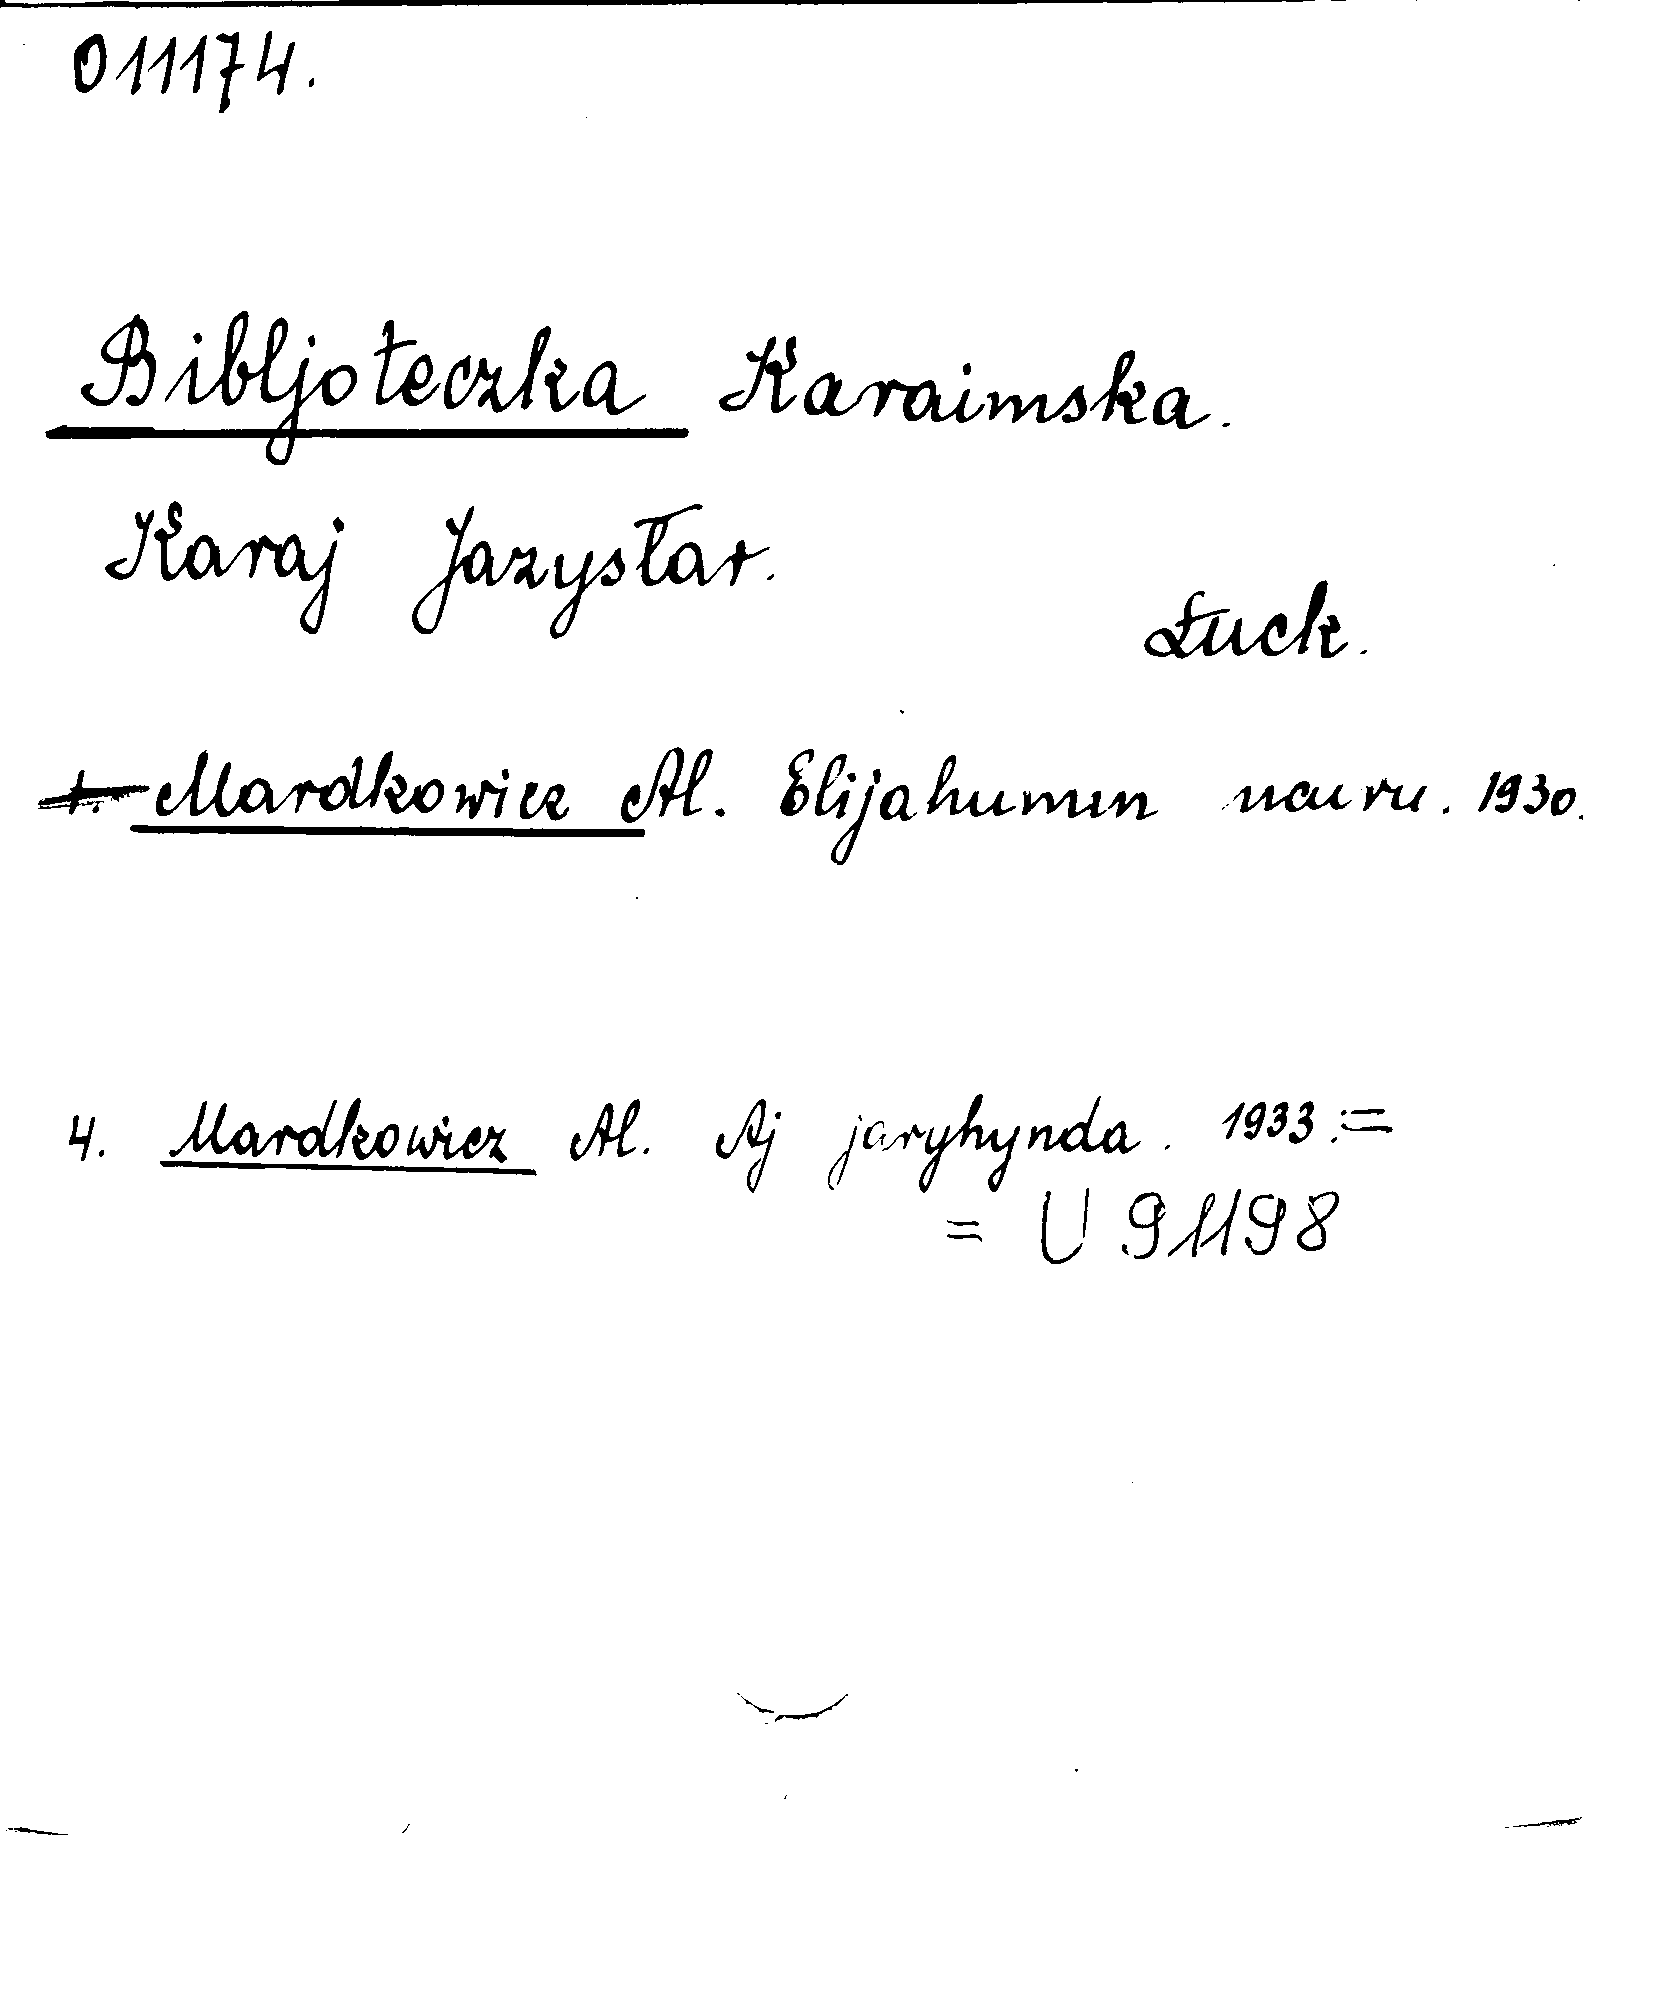 011174.
Bibljoteczka Karaimska.
Karaj Jazysłar.
Łuck.
1. Mardkowicz Al. Elijahunun ucuru. 1930.
4. Mardkowicz Al. Aj jaryhynda. 1933.=
= U 91198